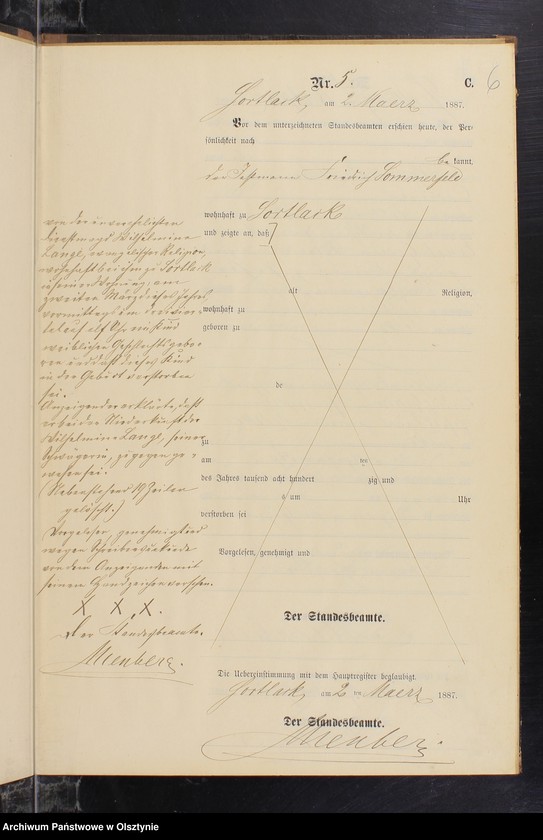 Nr. 5. C. 6
Sortlack, am 2. Maerz 1887.
Vor dem unterzeichneten Standesbeamten erschien heute, der Per-
sönlichkeit nach
be kannt,
der Friedrich Sommerfeld
wohnhaft zu Sortlack
und zeigte an, daß
von der unverehelichten
Dienstmagd Wilhelmine
Lange, evangelischer Religion,
wohnhaft bei ihm zu Sortlack
in seiner Wohnung, am
zweiten März dieses Jahres
vormittags um dreivier-
tel auf elf Uhr ein Kind
weiblichen Geschlechts gebo-
ren und daß dieses Kind
in der Geburt verstorben
sei.
Anzeigender erklärte, daß
er bei der Niederkunft der
Wilhelmine Lange, seiner
Schwägerin, zugegen ge-
wesen sei.
(Nebenstehend 19 Zeilen
gelöscht.)
Vorgelesen, genehmigt und
wegen Schreibensunkunde
von dem Anzeigenden mit
seinem Handzeichen versehen.
X X X.
Der Standesbeamte.
Mienberg.
alt Religion,
wohnhaft zu
geboren zu
de
zu
am ten
des Jahres tausend acht hundert zig und
um Uhr
verstorben sei
Vorgelesen, genehmigt und
Der Standesbeamte.
Die Uebereinstimmung mit dem Hauptregister beglaubigt.
Sortlack, am 2 ten Maerz 1887.
Der Standesbeamte.
Mienberg.
Archiwum Państwowe w Olsztynie